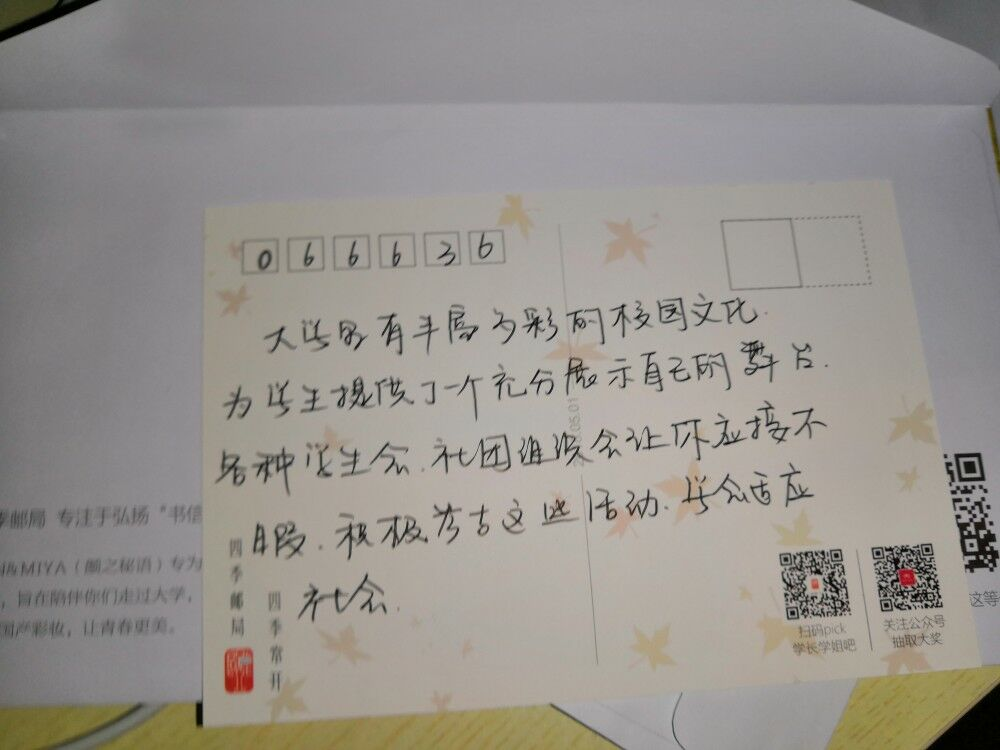 066636
大学里有丰富多彩的校园文化.
为学生提供了一个充分展示自己的舞台.
各种学生会.社团通识会让你应接不
暇.积极参去这些活动.学会适应
社会.
四季邮局
四季常开
扫码pick
学长学姐吧
关注公众号
抽取大奖
季邮局 专注于弘扬“书信
&MIYA（颜之秘语）专为
，旨在陪伴你们走过大学，
国产彩妆，让青春更美。
这等